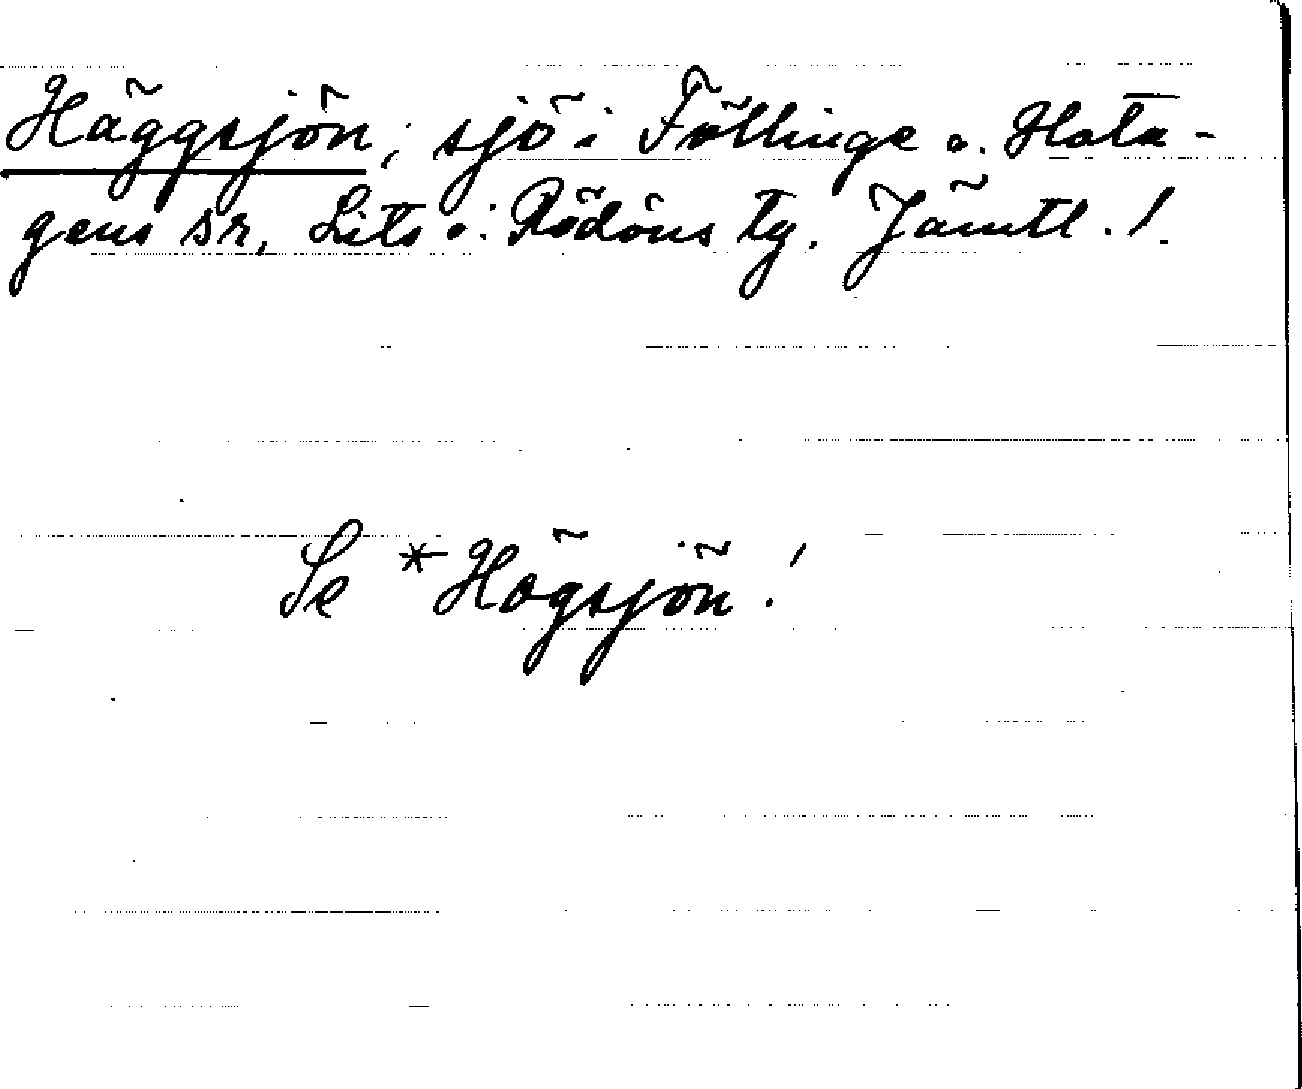 Häggsjön, sjö i Föllinge o. Hota-
gens sr, Lits o. Rödöns tg. Jämtl. l.
Se *Högsjön!